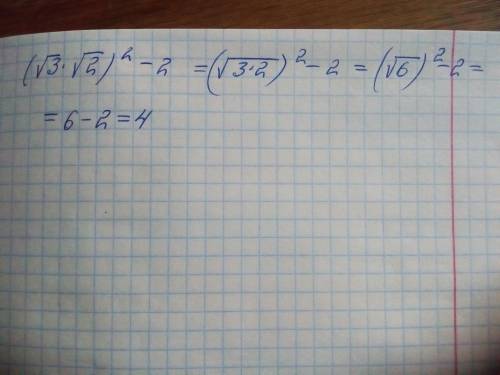 (√3·√2)² − 2 = (√3·2)² − 2 = (√6)² − 2 =
= 6 − 2 = 4